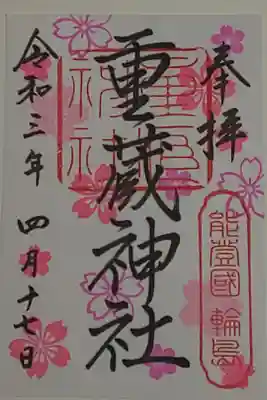 奉拝
重蔵神社
能登國 輪島
令和三年 四月十七日
重蔵神社